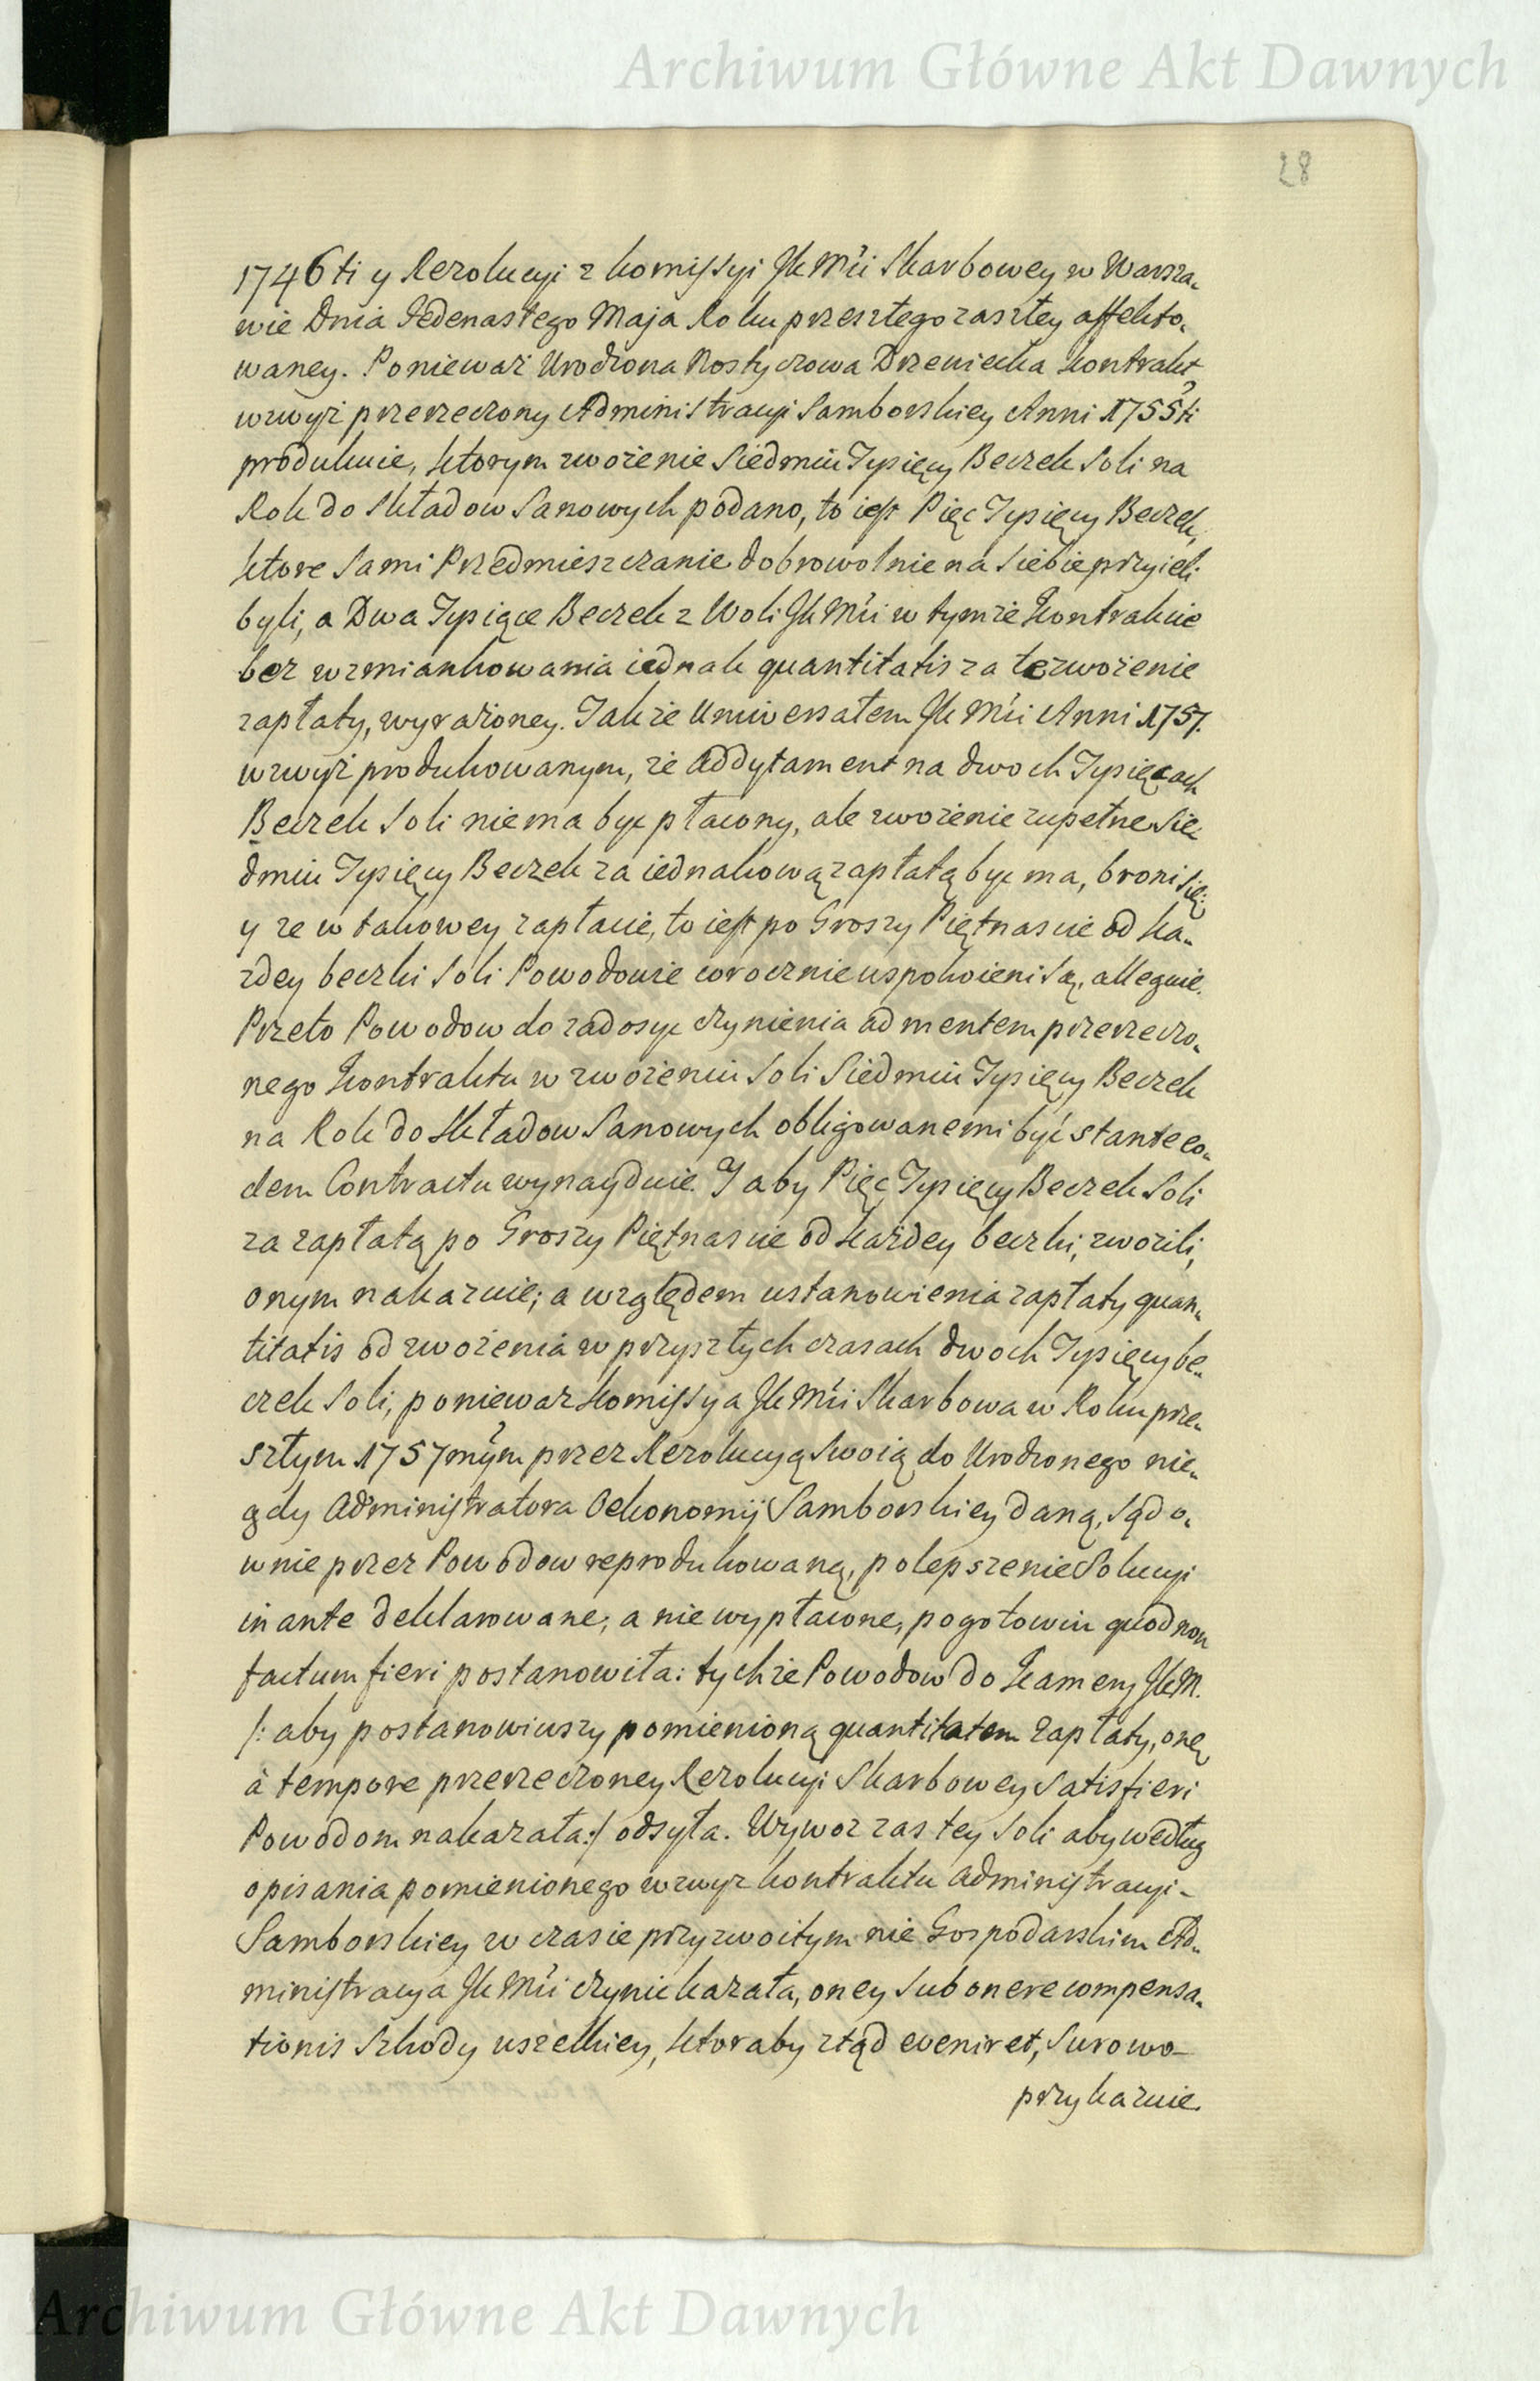 Archiwum Główne Akt Dawnych
28
1746ti y Rezolucyi z Komissyi JK Mći Skarbowey w Warsza-
wie Dnia Jedenastego Maja Roku przeszłego zaszłey affekto-
waney. Ponieważ Urodzona Rostyczowa Drzewiecka Kontrakt
wzwyż przerzeczony Administracyi Samborskiey Anni 1755ti
produkuie, ktorym zwożenie Siedmiu Tysięcy Beczek Soli na
Rok do Składow Sanowych podano, to iest Pięc Tysięcy Beczek,
ktore Sami Przedmieszczanie dobrowolnie na Siebie przyieli
byli, a Dwa Tysiące Beczek z Woli JK Mći w tymże Kontrakcie
bez wzmiankowania iednak quantitatis za te zwożenie
zapłaty, wyrażoney. Takze Uniwersałem JK Mći Anni 1757.
wzwyż produkowanym, że Addytament na dwoch Tysięcach
Beczek Soli niema byc płacony, ale zwożenie zupełne Sie-
dmiu Tysięcy Beczek za iednakową zapłatą byc ma, broni się;
y ze w takowey zapłacie, to iest po Groszy Piętnascie od ka-
zdey beczki Soli Powodowie corocznie uspokoieni są, alleguie.
Przeto Powodow do zadosyc czynienia ad mentem przerzeczo-
nego Kontraktu w zwożeniu Soli Siedmiu Tysięcy Beczek
na Rok do Składow Sanowych obligowanemi być stante eo-
dem Contractu wynayduie. J aby Pięc Tysięcy Beczek Soli
za zapłatą po Groszy Piętnascie od każdey beczki, zwozili,
onym nakazuie; a względem ustanowienia zapłaty quan-
titatis od zwożenia w przyszłych czasach dwoch Tysięcy be-
czek Soli, poniewaz Komissya JK Mći Skarbowa w Roku prze-
szłym 1757mym przez Rezolucyą Swoią do Urodzonego nie-
gdy Administratora Oekonomij Samborskiey daną, sądo-
wnie przez Powodow reprodukowaną, polepszenie Solucyi
in ante deklarowane, a nie wypłacone, pogotowiu quod non
factum fieri postanowiła: tychże Powodow do Kamery JK M.
/: aby postanowiwszy pomienioną quantitatem zapłaty, onę
à tempore przerzeczoney Rezolucyi Skarbowey Satisfieri
Powodom nakazała:/ odsyła. Wywoz zas tey Soli aby według
opisania pomienionego wzwyz kontraktu Administracyi
Samborskiey w czasie przyzwoitym nie Gospodarskim Ad-
ministracya JK Mći czynic kazała, oney sub onere compensa-
tionis Szkody wszelkiey, ktoraby ztąd eveniret, Surowo
przykazuie.
Archiwum Główne Akt Dawnych